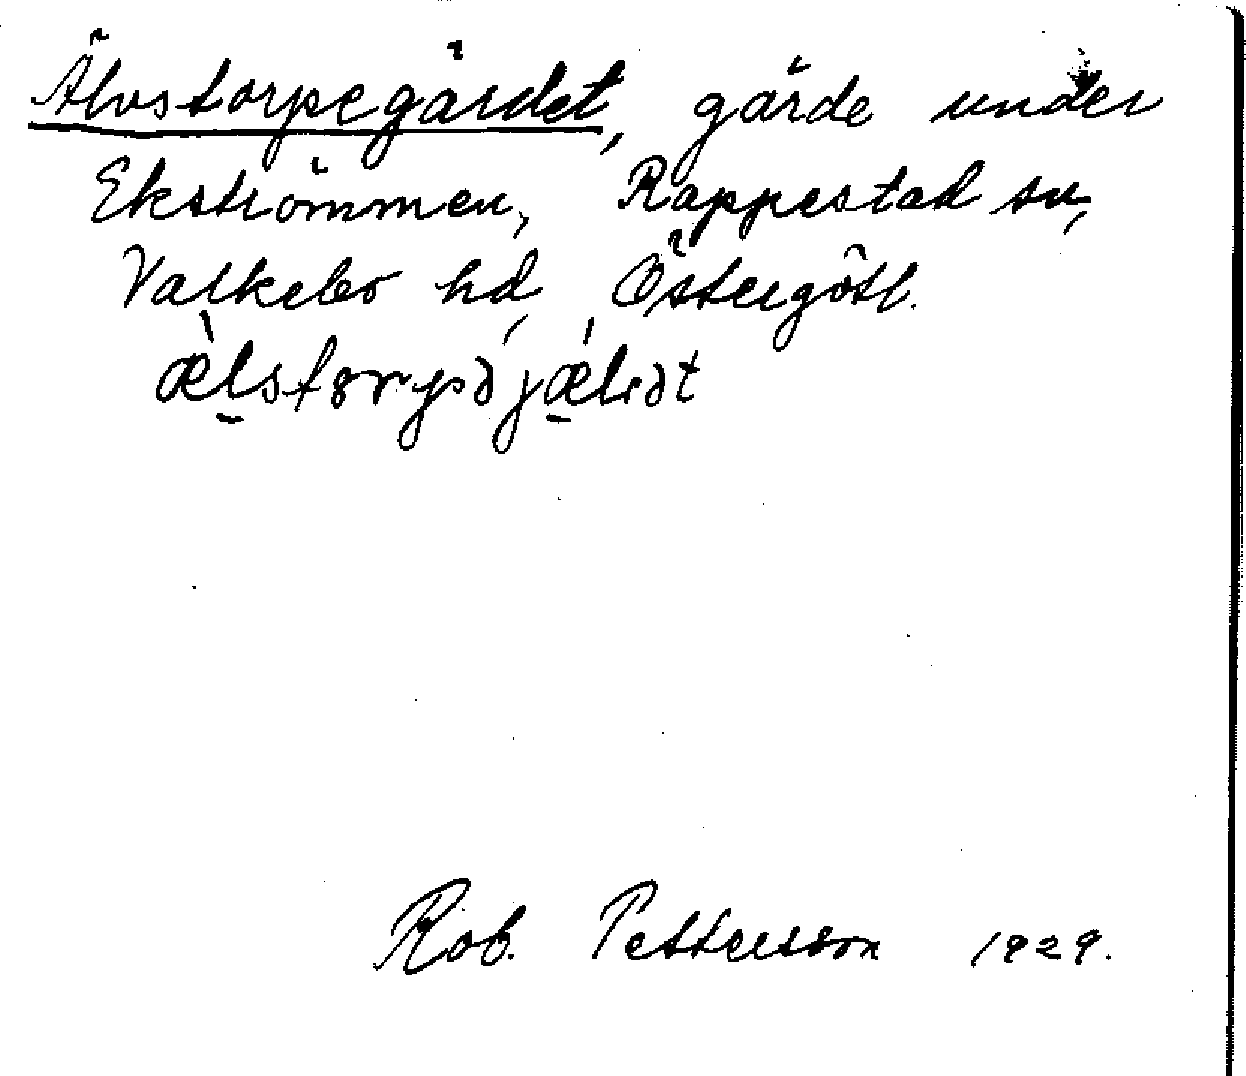 Älvstorpegärdet, gärde under
Ekströmmen, Rappestad sn,
Valkebo hd, Östergötl.
æ̀lstorpəjǽlɩət
Rob. Pettersson 1929.